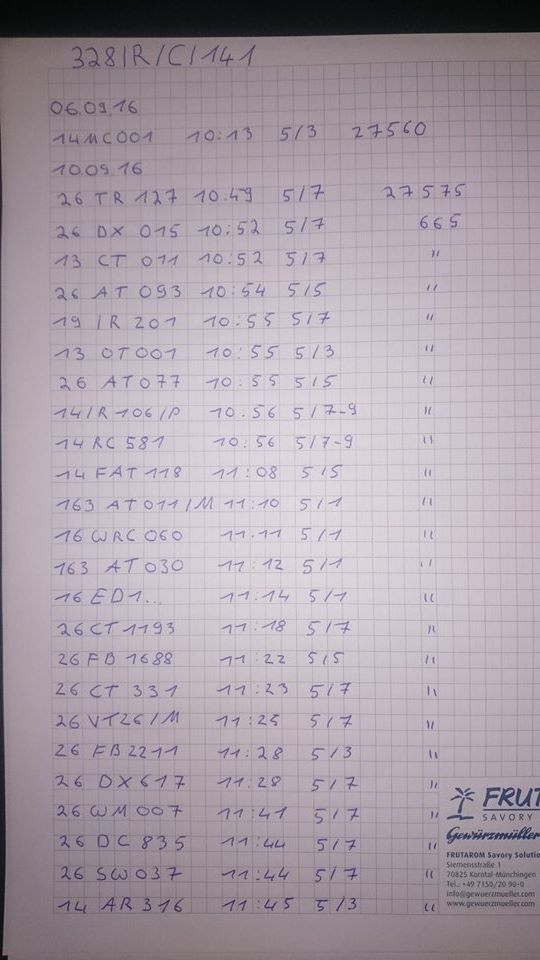 328/R/C/141
06.09.16
14MC001 10:13 5/3 27560
10.09.16
26 TR 127 10:49 5/7 27575
26 DX 015 10:52 5/7 665
13 CT 011 10:52 5/7 "
26 AT 093 10:54 5/5 "
19 IR 201 10:55 5/7 "
13 OT001 10:55 5/3 "
26 AT077 10:55 5/5 "
14/R 106/P 10:56 5/7-9 "
14 RC 581 10:56 5/7-9 "
14 FAT 118 11:08 5/5 "
163 AT 011/M 11:10 5/1 "
16 WRC 060 11:11 5/1 "
163 AT 030 11:12 5/1 "
16 ED1... 11:14 5/1 "
26 CT 1193 11:18 5/7 "
26 FB 1688 11:22 5/5 "
26 CT 331 11:23 5/7 "
26 VT26/M 11:25 5/7 "
26 FB2211 11:28 5/3 "
26 DX 617 11:28 5/7 "
26 WM 007 11:41 5/7 "
26 DC 835 11:44 5/7 "
26 SW 037 11:44 5/7 "
14 AR 316 11:45 5/3 "
FRUT
SAVORY
Gewürzmüller
FRUTAROM Savory Solutio
Siemensstraße 1
70825 Korntal-Münchingen
Tel.: +49 7150/20 90-0
info@gewuerzmueller.com
www.gewuerzmueller.com